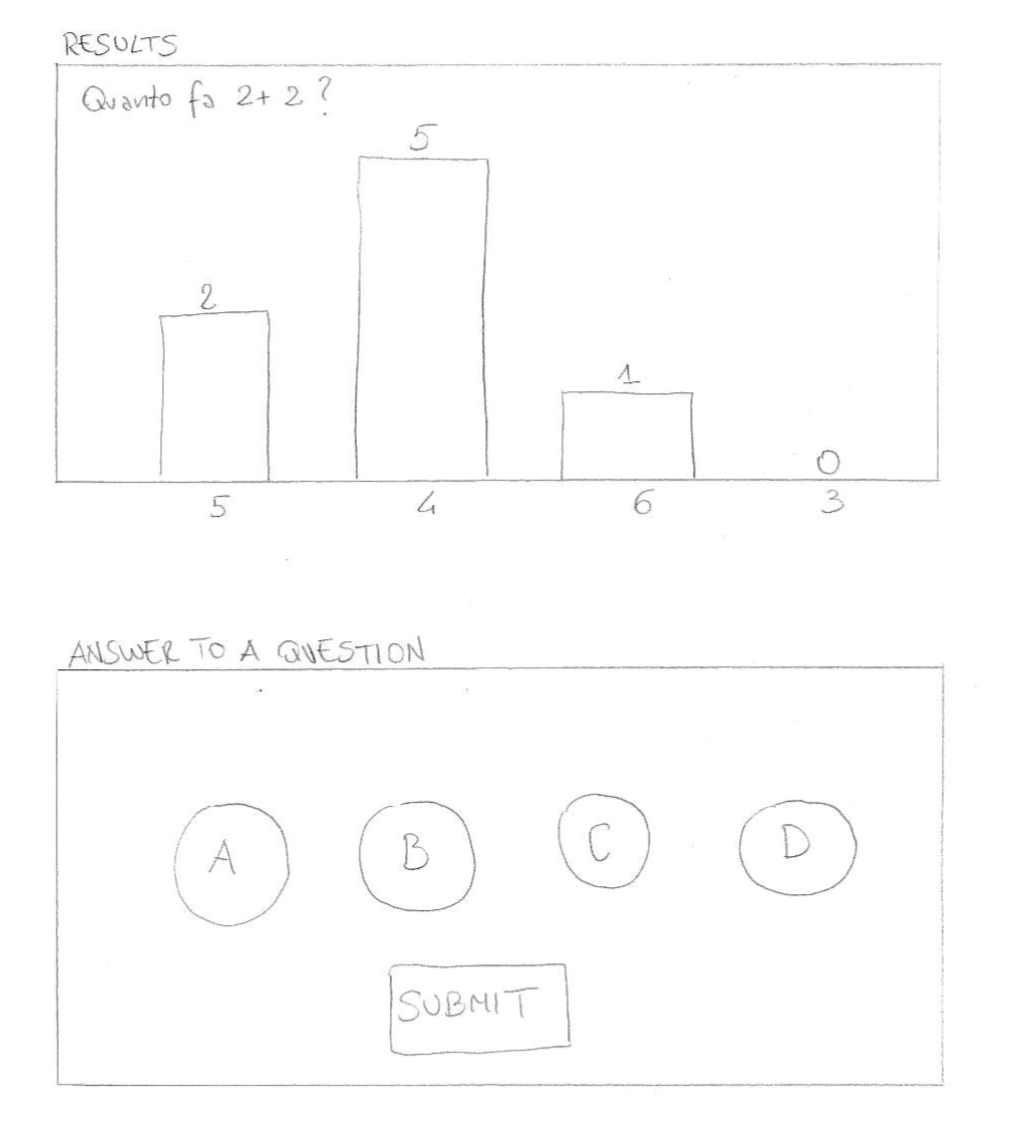 RESULTS
Quanto fa 2+2?
5
2
1
0
5 4 6 3
ANSWER TO A QUESTION
A B C D
SUBMIT